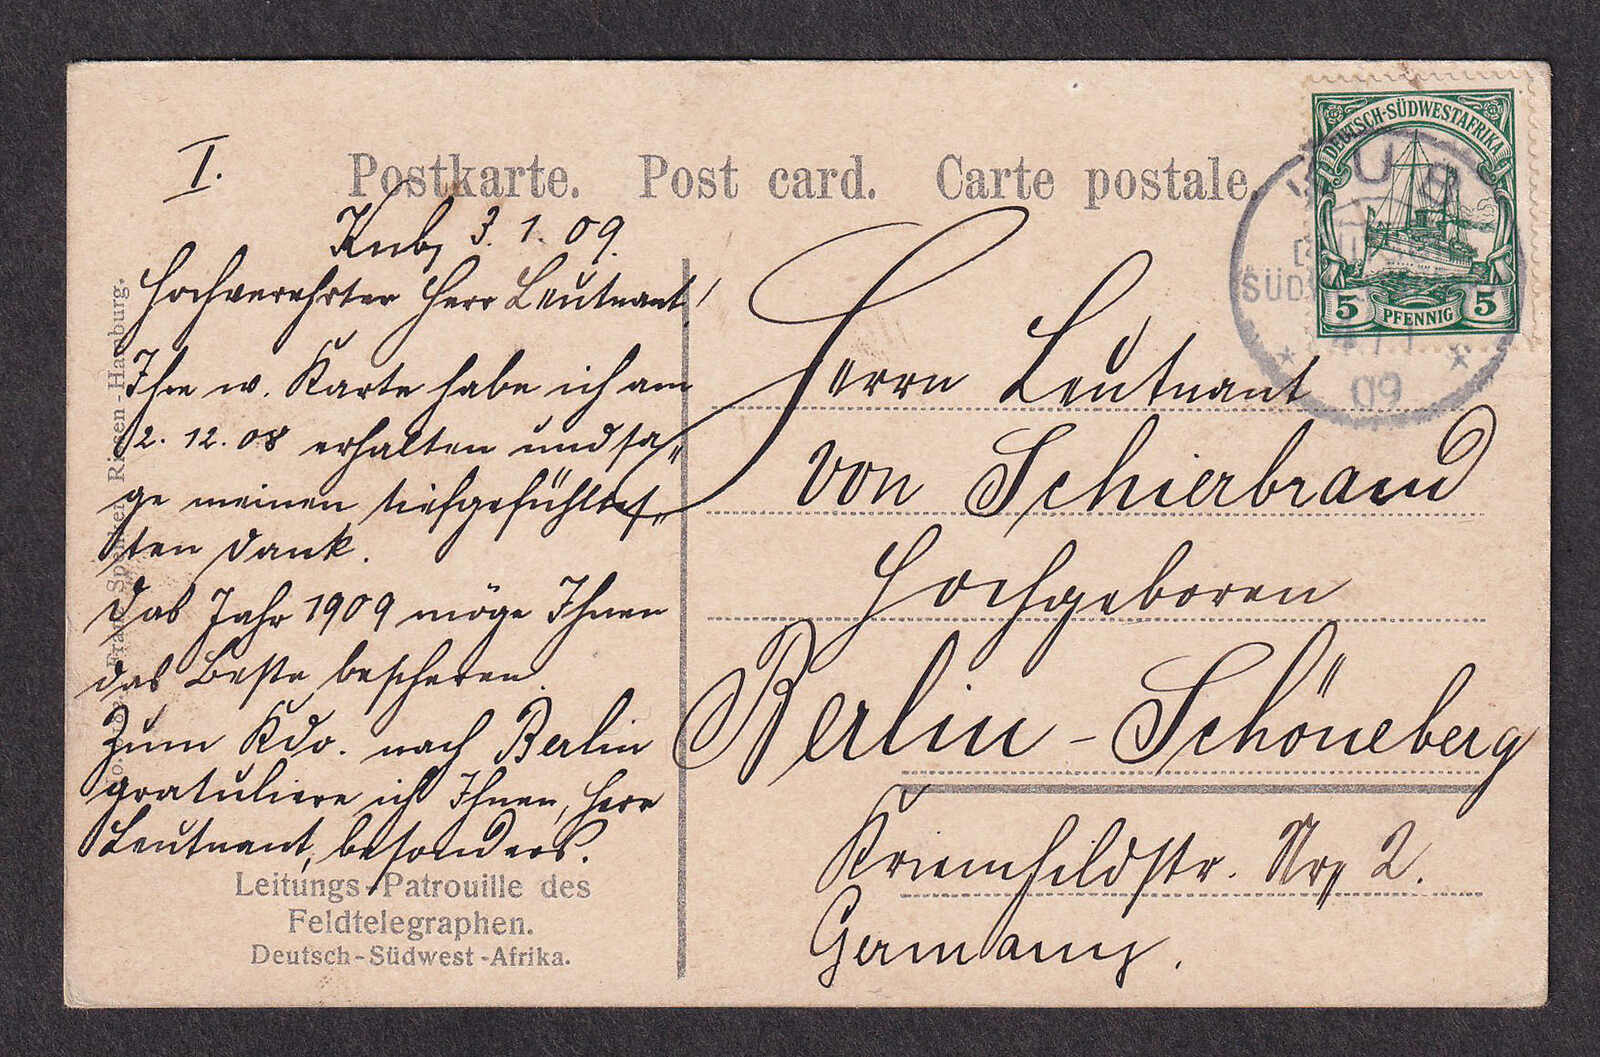 I.
Postkarte. Post card. Carte postale.
Kub, 3. 1. 09.
Hochverehrter Herr Leutnant!
Ihre w. Karte habe ich am
2. 12. 08 erhalten und sa-
ge meinen tiefgefühltes-
ten Dank.
Das Jahr 1909 möge Ihnen
das Beste bescheren.
Zum Kdo. nach Berlin
gratuliere ich Ihnen, Herr
Leutnant, besonders.
Leitungs-Patrouille des
Feldtelegraphen.
Deutsch-Südwest-Afrika.
Franz Spenker, Riesen-Hamburg.
DEUTSCH-SÜDWESTAFRIKA
5 PFENNIG 5
KUB
SÜDW
09
Herrn Leutnant
von Schierbrand
Hochgeboren
Berlin-Schöneberg
Kriemhildstr. Nr. 2.
Germany.